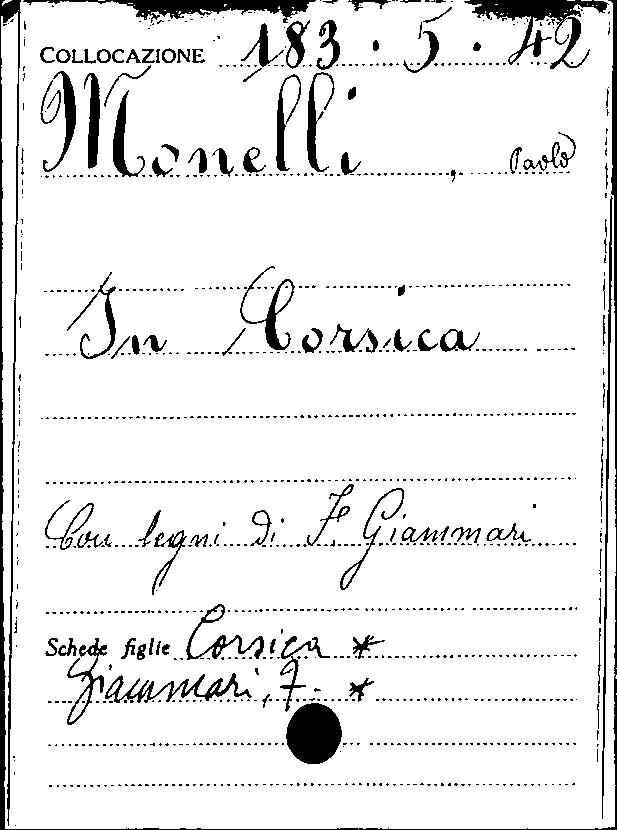 COLLOCAZIONE 183.5.42
Monelli, Paolo
In Corsica
Con legni di F. Giammari
Schede figlie Corsica *
Giammari, F. *